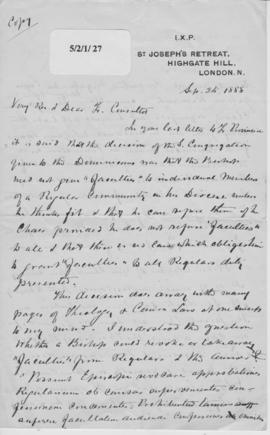 Copy
5/2/1/27
I.X.P.
ST JOSEPH'S RETREAT,
HIGHGATE HILL,
LONDON. N.
Sep. 26 1888
Very Rev & Dear Fr. Consultor
In your last letter to Fr.
it is said that the decision of the S. Congregation
given to the Dominicans was that the Bishop
need not give "faculties" to individual members
of a Regular Community in his Diocese unless
he thinks fit & that he can refuse them if he
chose provided he does not refuse "faculties"
to all & that there is no law which obliges him
to grant "faculties" to all Regulars duly
presented.
This decision does away with many
pages of Theology & Canon Law at one sweep
to my mind. I understood the question
whether a Bishop could revoke or take away
"faculties" from Regulars & this answer
Possunt Episcopi revocare approbationes
Regularium ob causas supervenientes con-
fessionem concernentes. Prohibentur tamen
auferre facultatem audiendi confessiones